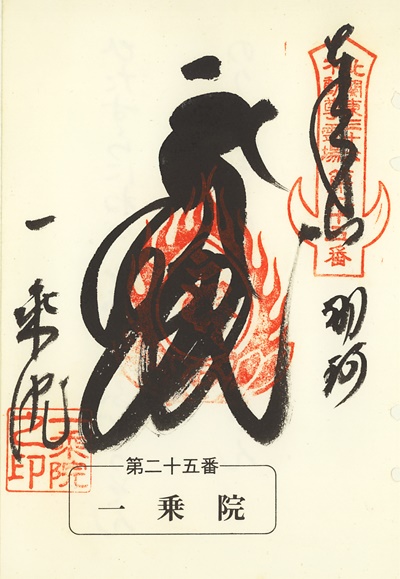 奉拝
北關東三十六
不動尊霊場
第二十五番
一乗院
一乗院
之印
第二十五番
一乗院